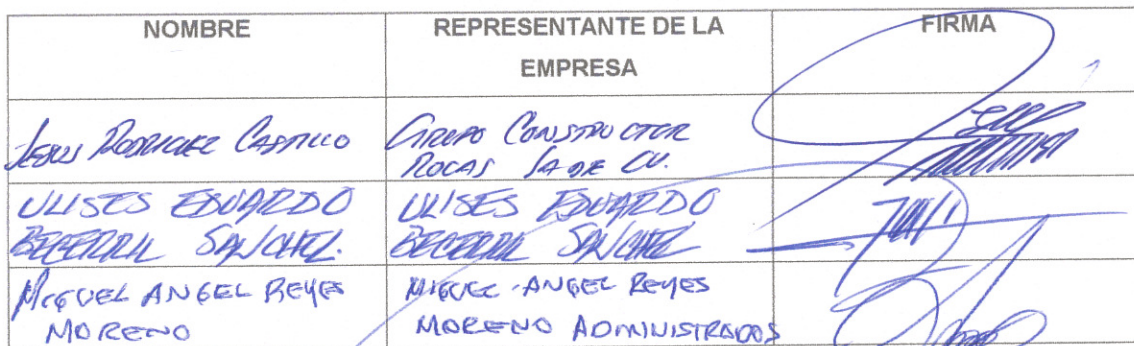 NOMBRE
REPRESENTANTE DE LA
EMPRESA
FIRMA
Jesus Rodriguez Castillo
Grupo Constructor
Rocas SA de CV.
ULISES EDUARDO
BECERRIL SANCHEZ.
ULISES EDUARDO
BECERRIL SANCHEZ
MIGUEL ANGEL REYES
MORENO
MIGUEL ANGEL REYES
MORENO ADMINISTRADOS